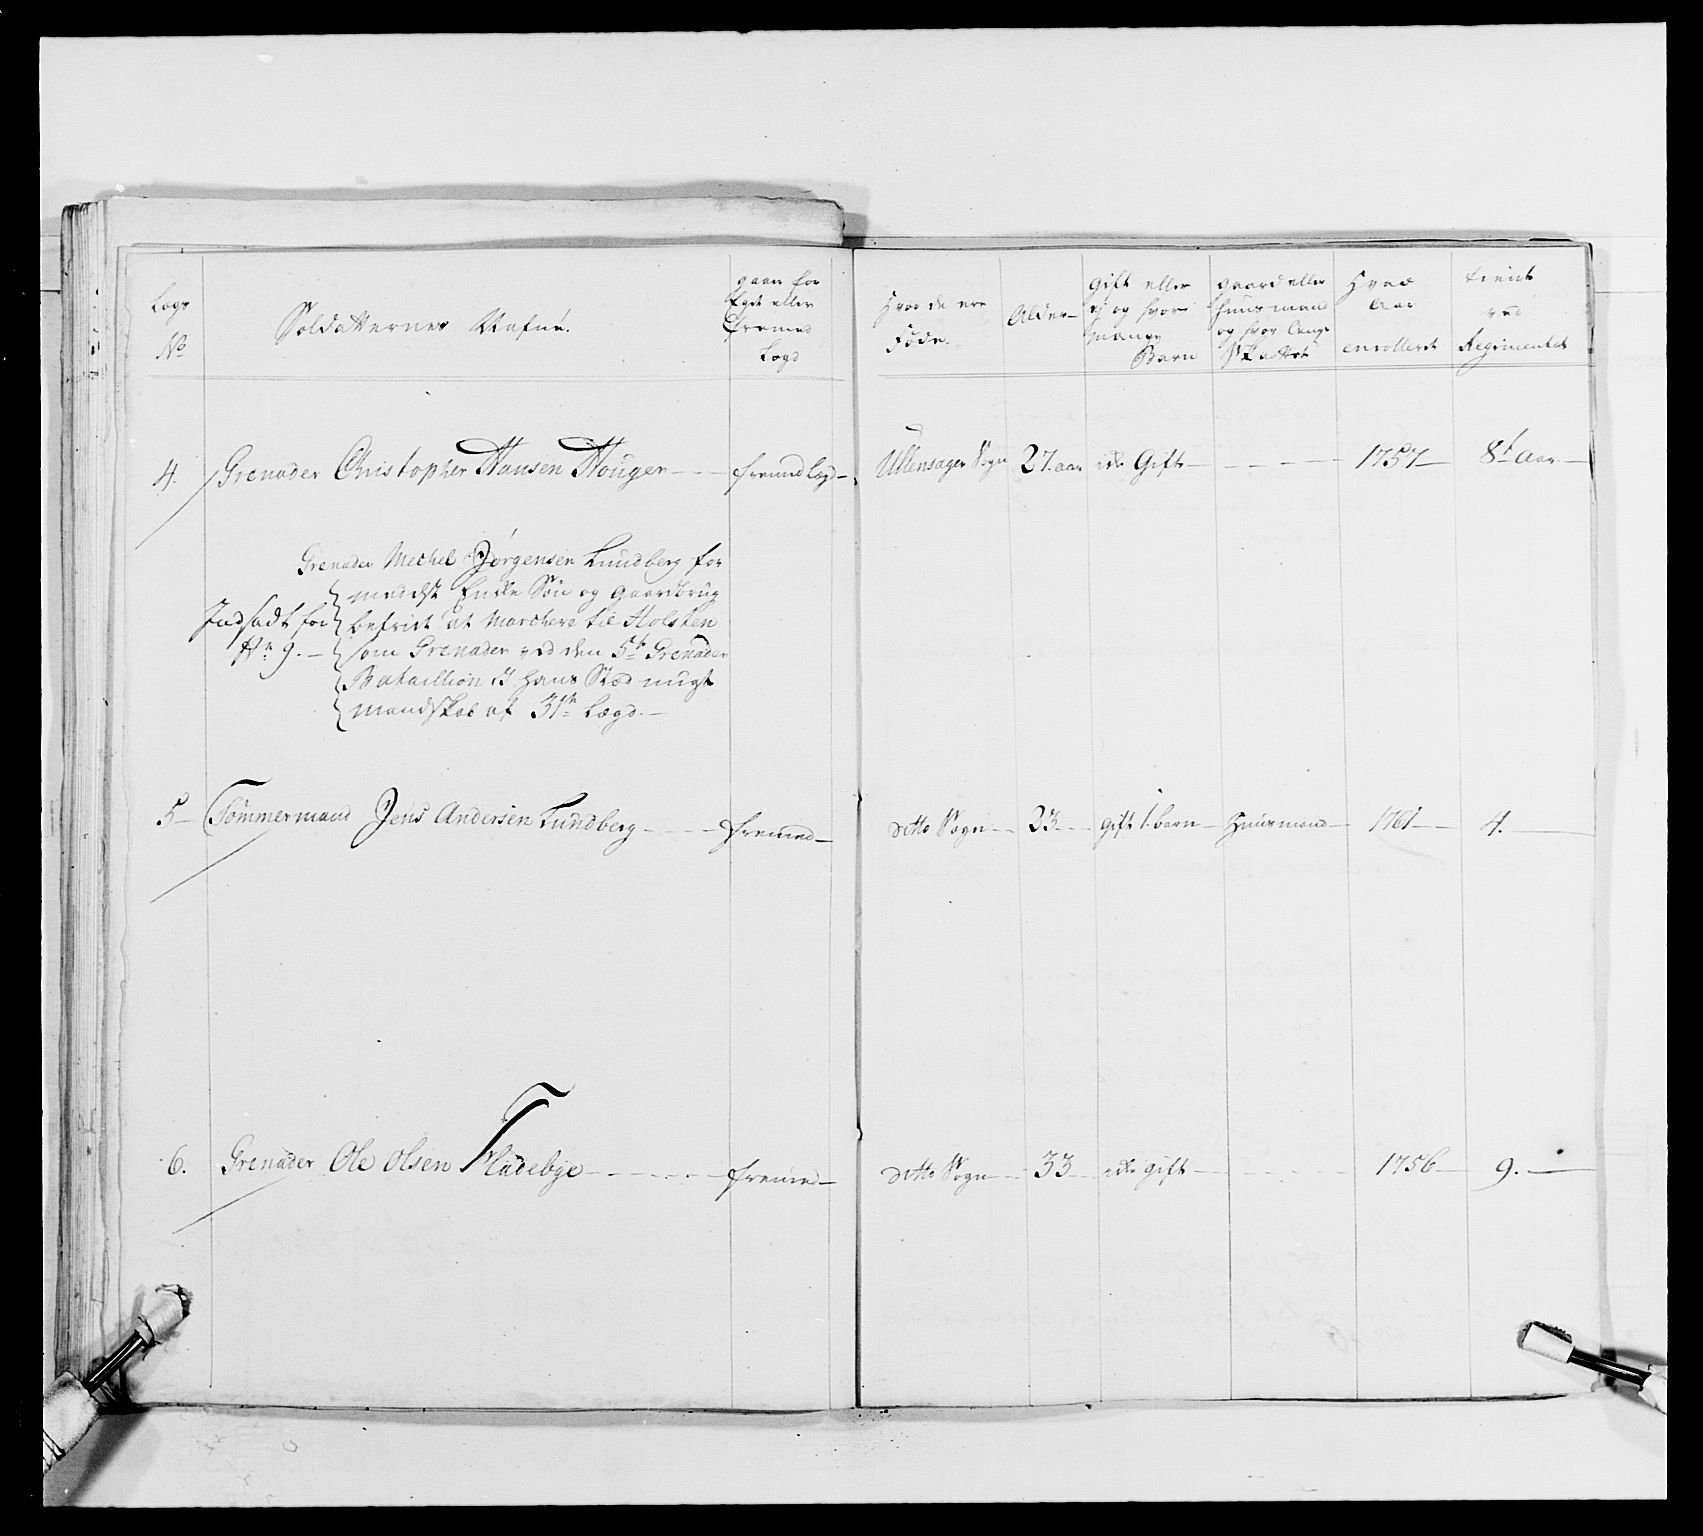 Lægs
No
Soldatternes Nafne.
gaaer for
Eget eller
fremed
Lægd
Hvor de ere
Føde.
Alder
Gift eller
ej og hvor
mange
Barn
gaard eller
huusmand
og hvor lenge
Skattet
Hvad
Aar
enrolleret
tient
ved
Regimentet
4. Grenader Christopher Hansen Houger fremed Lægd Ullensager Sogn 27. aar icke Gift 1757 8t Aar
Grenader Mechel Jørgensen Lundberg for
meddelst Encke Søn og Gaardbrug
befriet at Marchere til Holsten
som Grenader ved den 5te Grenader
Batailion I hans Stæd nugt
mandskab af 31te Lægd.
Indsadt for
No 9.
5 Tømmermand Jens Andersen Lundberg fremed ditto Sogn 23 gift 1. barn Huusmand 1761 4.
6. Grenader Ole Olsen Fladebye fremed ditto Sogn 33 icke gift 1756 9.